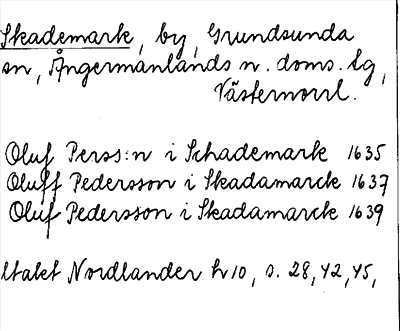 Skademark, by, Grundsunda
sn, Ångermanlands n. doms. tg,
Västernorrl.
Oluf Perss:n i Schademark 1635
Oluff Pedersson i Skadamarck 1637
Oluf Pedersson i Skadamarck 1639
Utalet Nordlander h 10, s. 28, 42, 45,